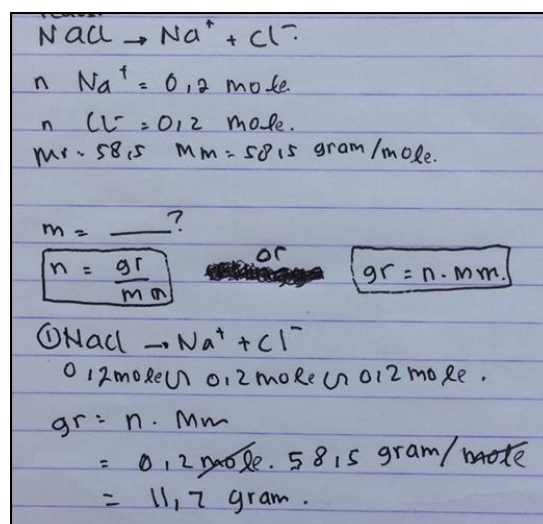 NaCl → Na⁺ + Cl⁻.
n Na⁺ = 0,2 mole.
n Cl⁻ = 0,2 mole.
Mr = 58,5 Mm = 58,5 gram/mole.
m = ____?
n = gr/mm or gr = n. mm.
① NaCl → Na⁺ + Cl⁻
0,2 mole ∽ 0,2 mole ∽ 0,2 mole.
gr = n. Mm
= 0,2 mole. 58,5 gram/mole
= 11,7 gram.